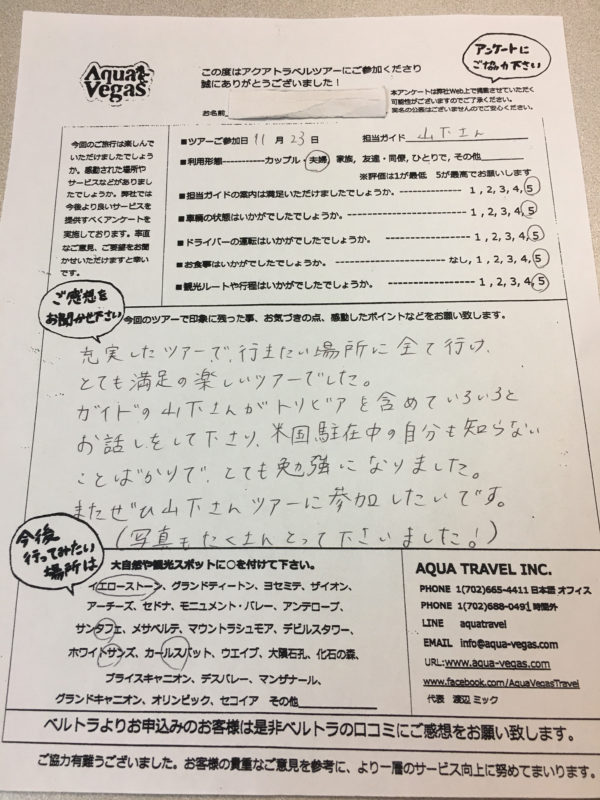 Aqua
Vegas
この度はアクアトラベルツアーにご参加くださり
誠にありがとうございました！
お名前
アンケートに
ご協力下さい
本アンケートは弊社Web上で掲載させていただく
可能性がございますのでご了承ください。
実名の公表はございませんのでご安心ください。
今回のご旅行は楽しんで
いただけましたでしょう
か。感動された場所や
サービスなどがありまし
たでしょうか。弊社では
今後より良いサービスを
提供すべくアンケートを
実施しております。率直
なご意見、ご要望をお聞
かせいただけますと幸い
です。
■ツアーご参加日 11 月 23 日 担当ガイド 山下さん
■利用形態------------カップル・夫婦, 家族, 友達・同僚, ひとりで, その他
※評価は1が最低 5が最高でお願いします
■担当ガイドの案内は満足いただけましたでしょうか。 1 , 2, 3, 4, 5
■車輌の状態はいかがでしたでしょうか。 1 , 2, 3, 4, 5
■ドライバーの運転はいかがでしたでしょうか。 1 , 2, 3, 4, 5
■お食事はいかがでしたでしょうか。 なし, 1, 2, 3, 4, 5
■観光ルートや行程はいかがでしたでしょうか。 1, 2, 3, 4, 5
ご感想を
お聞かせ下さい
今回のツアーで印象に残った事、お気づきの点、感動したポイントなどをお願い致します。
充実したツアーで、行きたい場所に全て行け、
とても満足の楽しいツアーでした。
ガイドの山下さんがトリビアを含めていろいろと
お話しをして下さり、米国駐在中の自分も知らない
ことばかりで、とても勉強になりました。
またぜひ山下さんツアーに参加したいです。
(写真もたくさんとって下さいました！)
今後
行ってみたい
場所は
大自然や観光スポットに○を付けて下さい。
イエローストーン、グランドティートン、ヨセミテ、ザイオン、
アーチーズ、セドナ、モニュメント・バレー、アンテロープ、
サンタフェ、メサベルデ、マウントラシュモア、デビルスタワー、
ホワイトサンズ、カールスバット、ウエイブ、大隕石孔、化石の森、
ブライスキャニオン、デスバレー、マンザナール、
グランドキャニオン、オリンピック、セコイア その他
AQUA TRAVEL INC.
PHONE 1(702)665-4411 日本語 オフィス
PHONE 1(702)688-0491 時間外
LINE aquatravel
EMAIL info@aqua-vegas.com
URL:www.aqua-vegas.com
www.facebook.com/AquaVegasTravel
代表 渡辺 ミック
ベルトラよりお申込みのお客様は是非ベルトラの口コミにご感想をお願い致します。
ご協力有難うございました。お客様の貴重なご意見を参考に、より一層のサービス向上に努めてまいります。